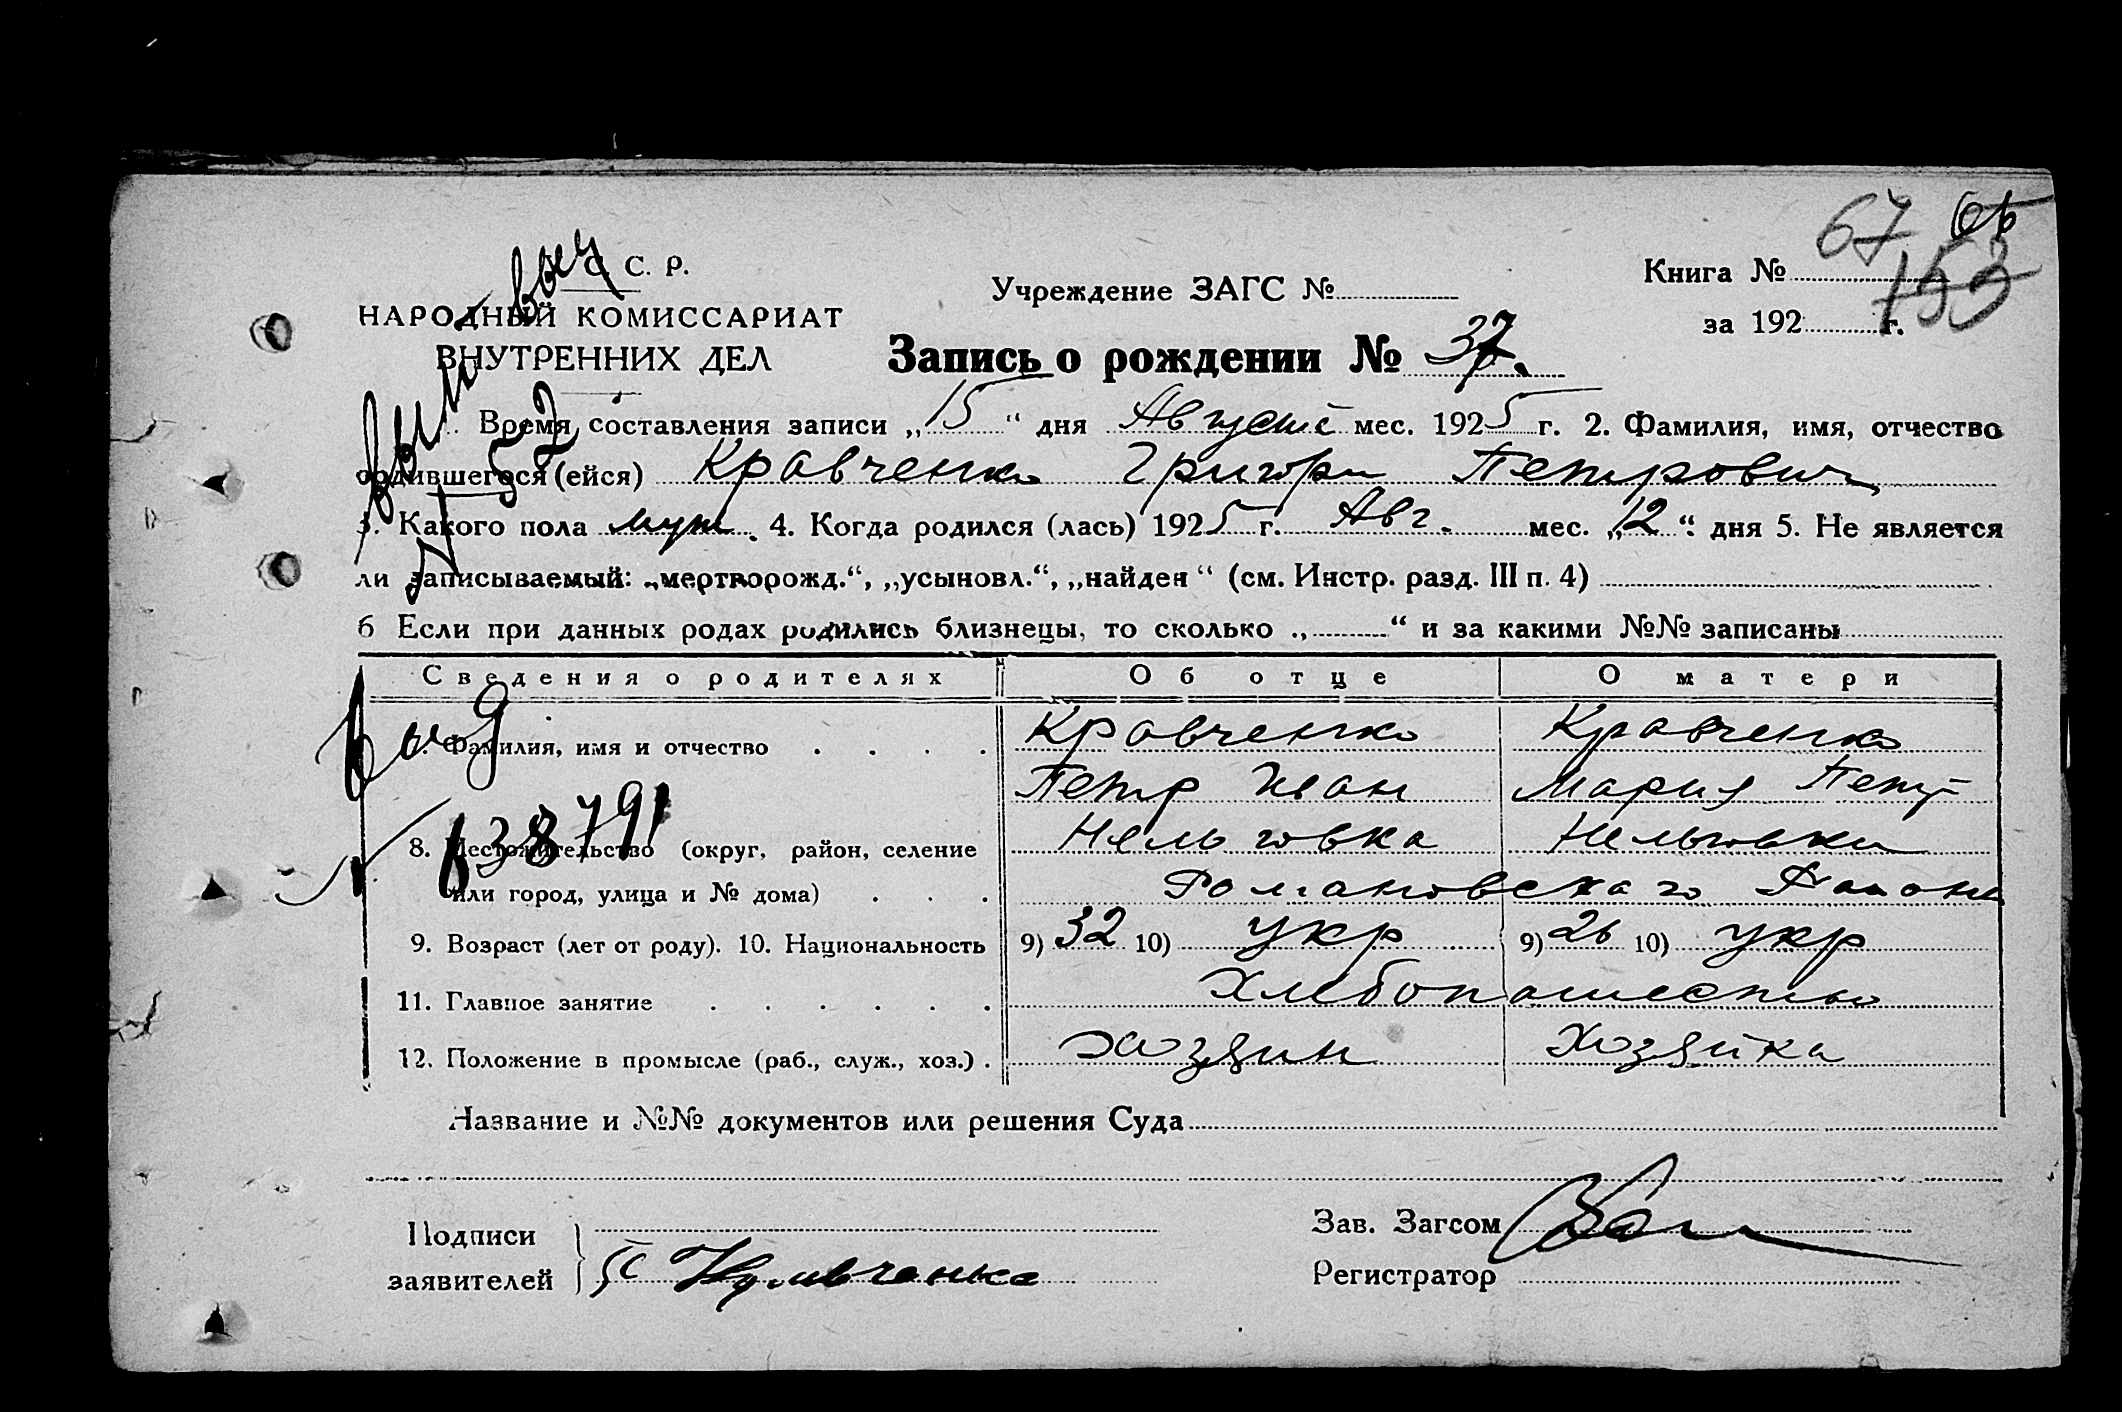 67 65
153
С. С. Р.
НАРОДНЫЙ КОМИССАРИАТ
ВНУТРЕННИХ ДЕЛ
Учреждение ЗАГС №
Книга №
за 192 г.
Запись о рождении № 37.
Время составления записи „15“ дня Августа мес. 1925 г. 2. Фамилия, имя, отчество
родившегося (ейся) Кравченко Григори Петрович
3. Какого пола муж. 4. Когда родился (лась) 1925 г. Авг. мес. „12“ дня 5. Не является
ли записываемый: „мертворожд.“, „усыновл.“, „найден“ (см. Инстр. разд. III п. 4)
6 Если при данных родах родились близнецы, то сколько „ “ и за какими №№ записаны
Сведения о родителях Об отце О матери
Фамилия, имя и отчество Кравченко Кравченко
Петр Иван Мария Петр
8. Местожительство (округ, район, селение Нельговка Нельговка
или город, улица и № дома) Романовского Района
9. Возраст (лет от роду). 10. Национальность 9) 32 10) укр 9) 26 10) укр
11. Главное занятие Хлебопашество
12. Положение в промысле (раб., служ., хоз.) хозяин Хозяйка
Название и №№ документов или решения Суда
Подписи
заявителей
Зав. Загсом
Регистратор
выд
38791